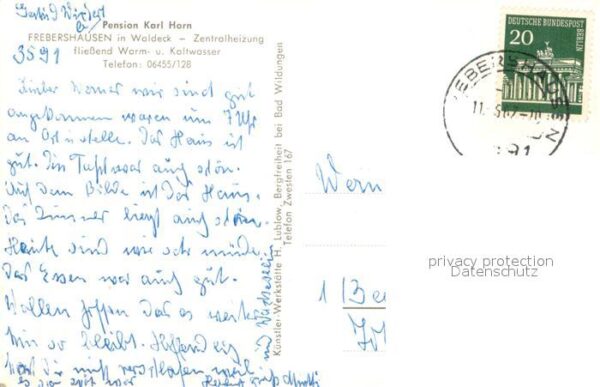 Pension Karl Horn
FREBERSHAUSEN in Waldeck – Zentralheizung
fließend Warm- u. Kaltwasser
Telefon: 06455/128
3591
Lieber Werner wir sind gut
angekommen waren um 7 Uhr
an Ort u stelle. Das Haus ist
gut. Die war auch schön.
Auf dem Bilde ist das Haus.
Das Zimmer liegt auch schön.
Heute sind wir sehr müde.
Das Essen war auch gut.
Wollen hoffen das es weiter
so bleibt. Hoffendlich
hast du nicht verschlafen weil
es so spät war
Künstler-Werkstätte H. Lublow, Bergfreiheit bei Bad Wildungen
Telefon Zwesten 167
DEUTSCHE BUNDESPOST
BERLIN
20
FREBERSHAUSEN
Wern
1 Be
privacy protection
Datenschutz